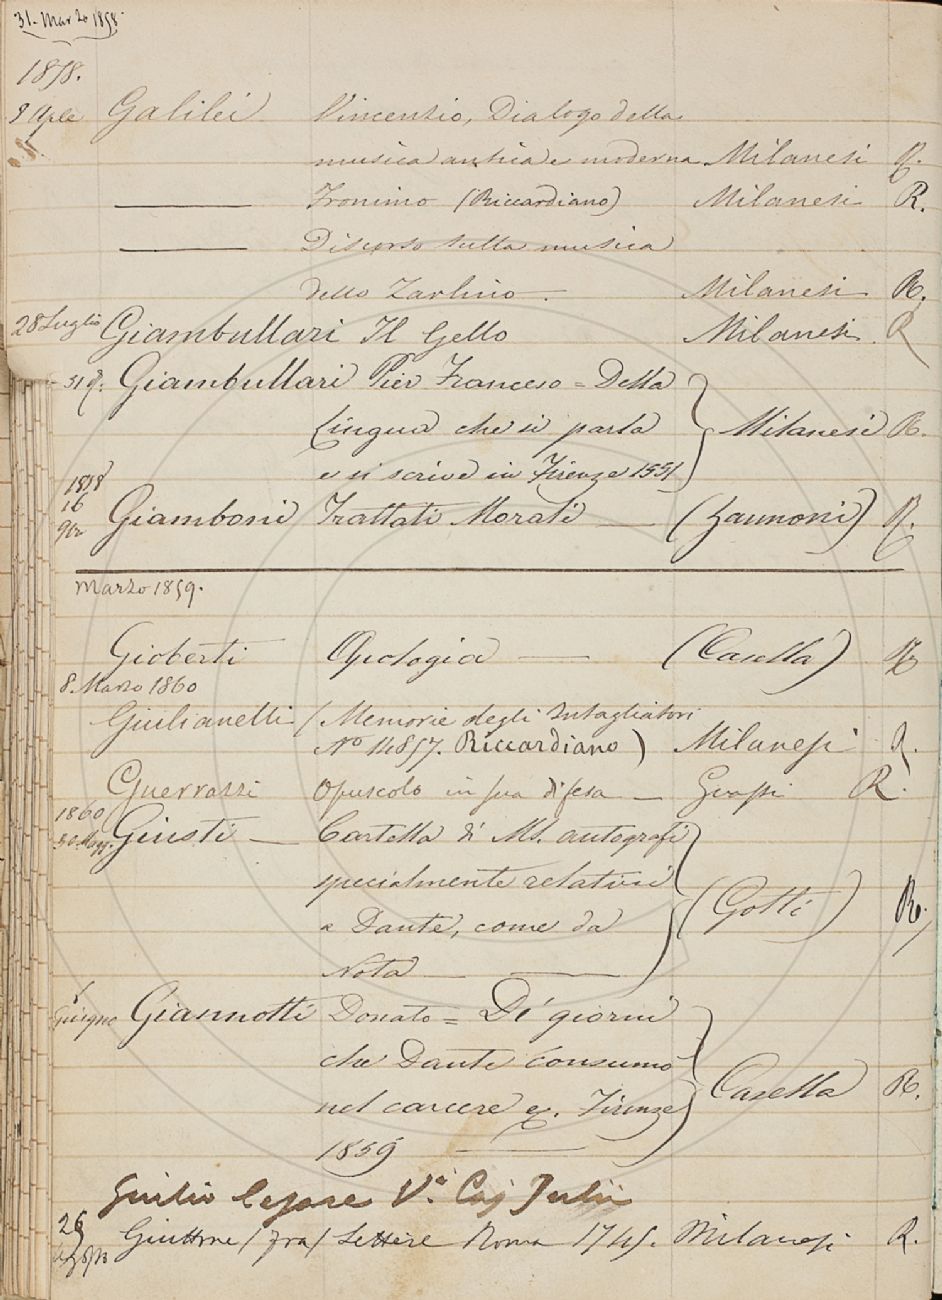 31. Marzo 1858.
1858.
9 Aple Galilei Vincenzio, Dialogo della
musica antica e moderna. Milanesi R.
Fronimo (Riccardiano) Milanesi R.
Discorso sulla musica
dello Zarlino. Milanesi R.
28 Luglio Giambullari Il Gello Milanesi. R
31 d. Giambullari Pier Francesco = Della
Lingua che si parla Milanesi R.
e si scrive in Firenze 1551
1858
16
9bre Giamboni Trattati Morali (Zannoni) R.
Marzo 1859.
Gioberti Apologia (Casella) R
8. Marzo 1860
Giulianelli (Memorie degli Intagliatori
No 14857. Riccardiano) Milanesi R.
Guerrazzi Opuscolo in sua difesa Grassi R.
1860
30. Magg. Giusti Cartella di Ms. autografi
specialmente relativi
a Dante, come da (Gotti) R.
Nota
Giugno Giannotti Donato = De' giorni
che Dante consumò
nel carcere &. Firenze Casella R.
1859
Giulio Cesare V. Caj Julii
26
Guittone (fra) Lettere Roma 1745. Milanesi R.